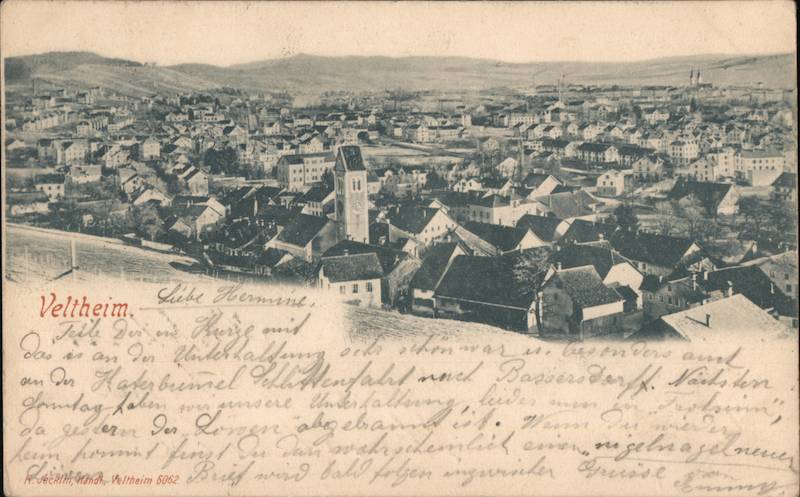 Veltheim.
Liebe Hermine,
Teile Dir in Kürze mit
das es an der Unterhaltung sehr schön war u. besonders
an der Katerbummel Schlittenfahrt nach Bassersdorf. Nächsten
Sonntag haben wir unsere Unterhaltung leider nun im "Frohsinn",
da gestern der "Löwen" abgebrannt ist. Wenn Du wieder
heim kommst finst Du dan wahrscheinlich einen "nigelnagelneuen
Brief wird bald folgen inzwischen Grüsse von
Emmy.
Jecklin, Handl., Veltheim 6062